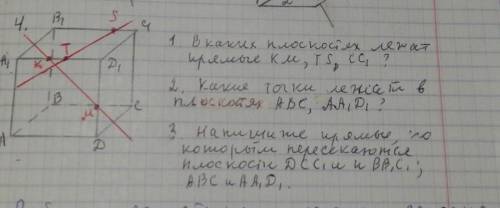 4.
B₁
S
C₁
A₁
K
T
D₁
B
M
C
A
D
1. В каких плоскостях лежат
прямые KM, TS, CC₁ ?
2. Какие точки лежат в
плоскотях ABC, AA₁D₁ ?
3. Напишите прямые, по
которым пересекаются
плоскости DCC₁ и BB₁C₁;
ABC и AA₁D₁.